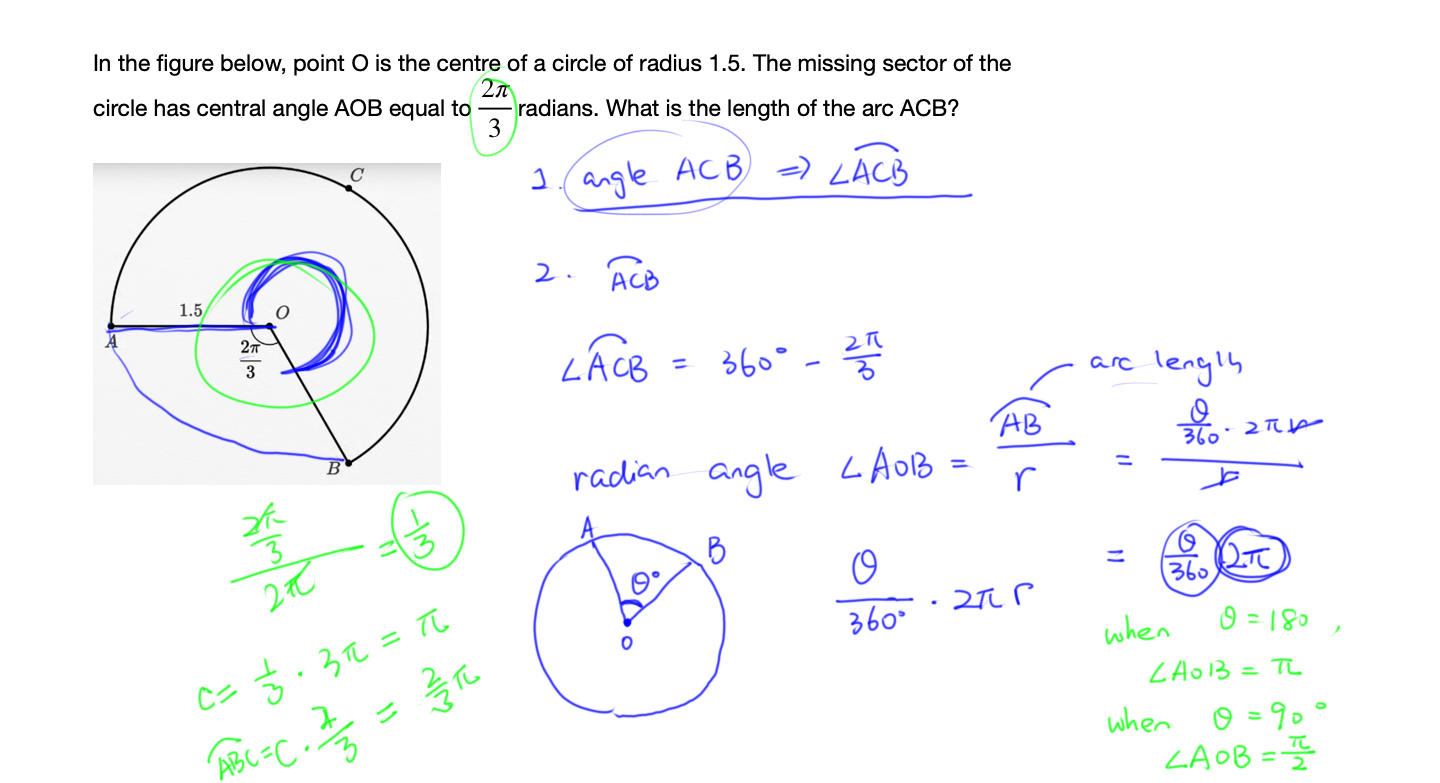 In the figure below, point O is the centre of a circle of radius 1.5. The missing sector of the
circle has central angle AOB equal to 2π/3 radians. What is the length of the arc ACB?
C
1.5
O
A
2π/3
B
1. angle ACB ⇒ ∠A͡CB
2. A͡CB
∠A͡CB = 360° - 2π/3
arc length
radian angle ∠AOB = A͡B/r = (θ/360 · 2πr)/r
= θ/360 2π
A
B
θ°
O
θ/360° · 2πr
when θ = 180,
∠AOB = π
when θ = 90°
∠AOB = π/2
(2π/3)/2π = 1/3
C = 1/3 · 3π = π
A͡BC = C · 2/3 = 2/3 π